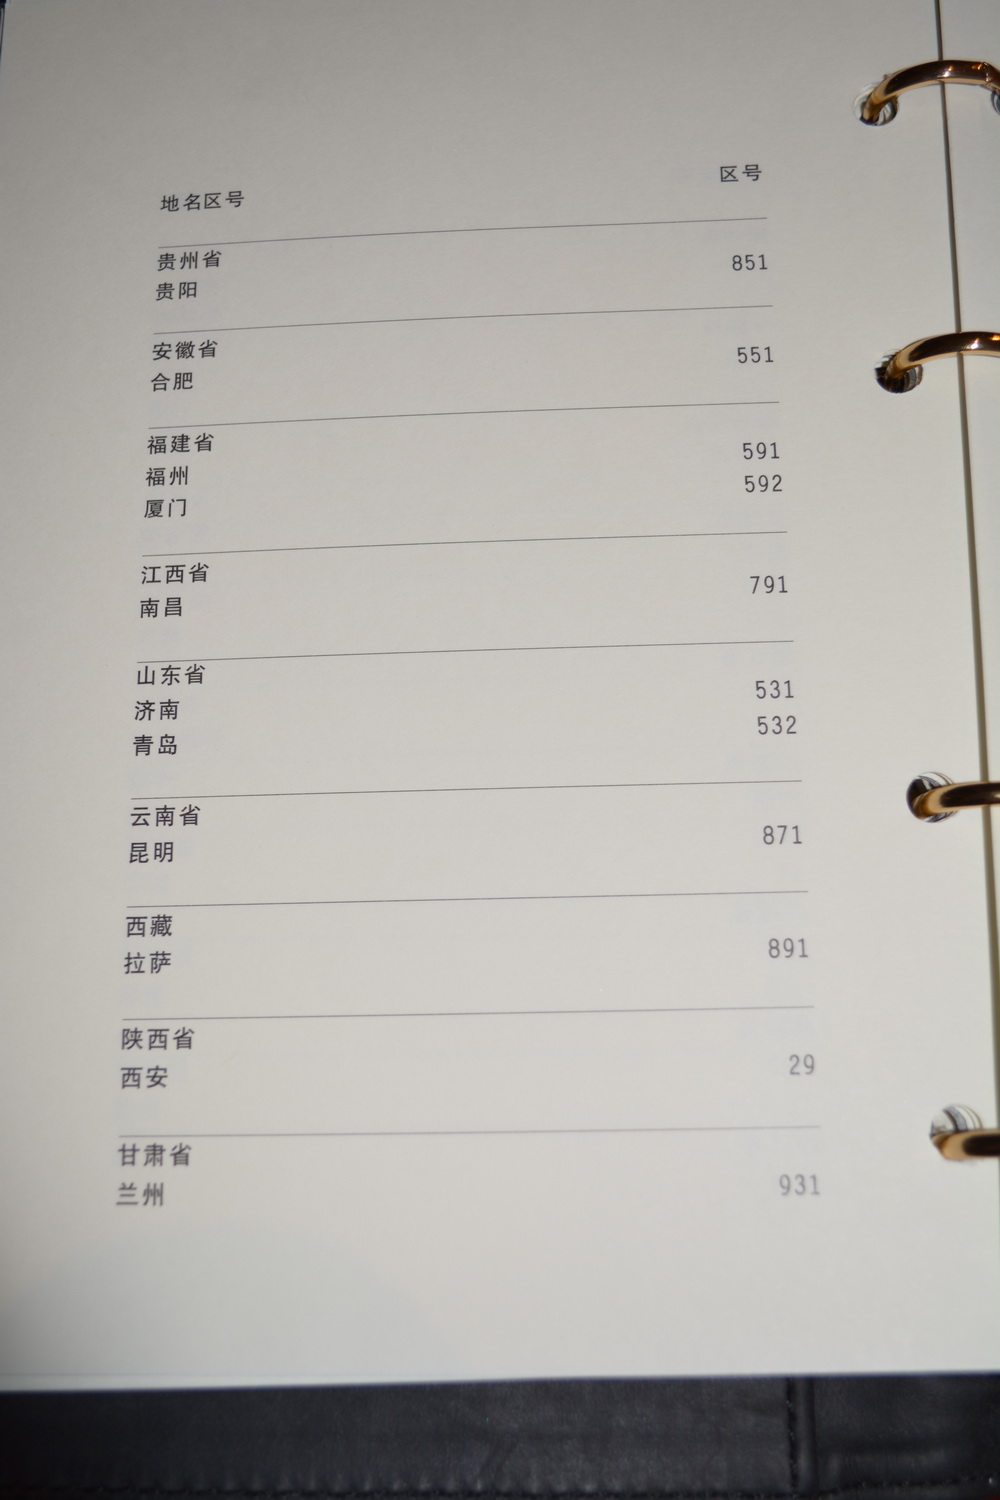 地名区号 区号
贵州省
贵阳 851
安徽省
合肥 551
福建省
福州 591
厦门 592
江西省
南昌 791
山东省
济南 531
青岛 532
云南省
昆明 871
西藏
拉萨 891
陕西省
西安 29
甘肃省
兰州 931